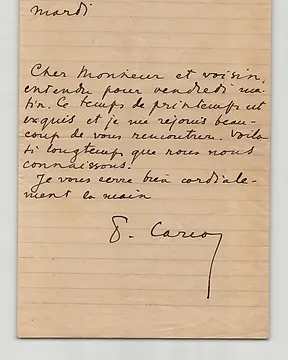 mardi
Cher Monsieur et voisin,
entendu pour vendredi ma-
tin. Ce temps de printemps est
exquis et je me réjouis beau-
coup de vous rencontrer. Voilà
si longtemps que nous nous
connaissons!
Je vous serre bien cordiale-
ment la main
F. Carco